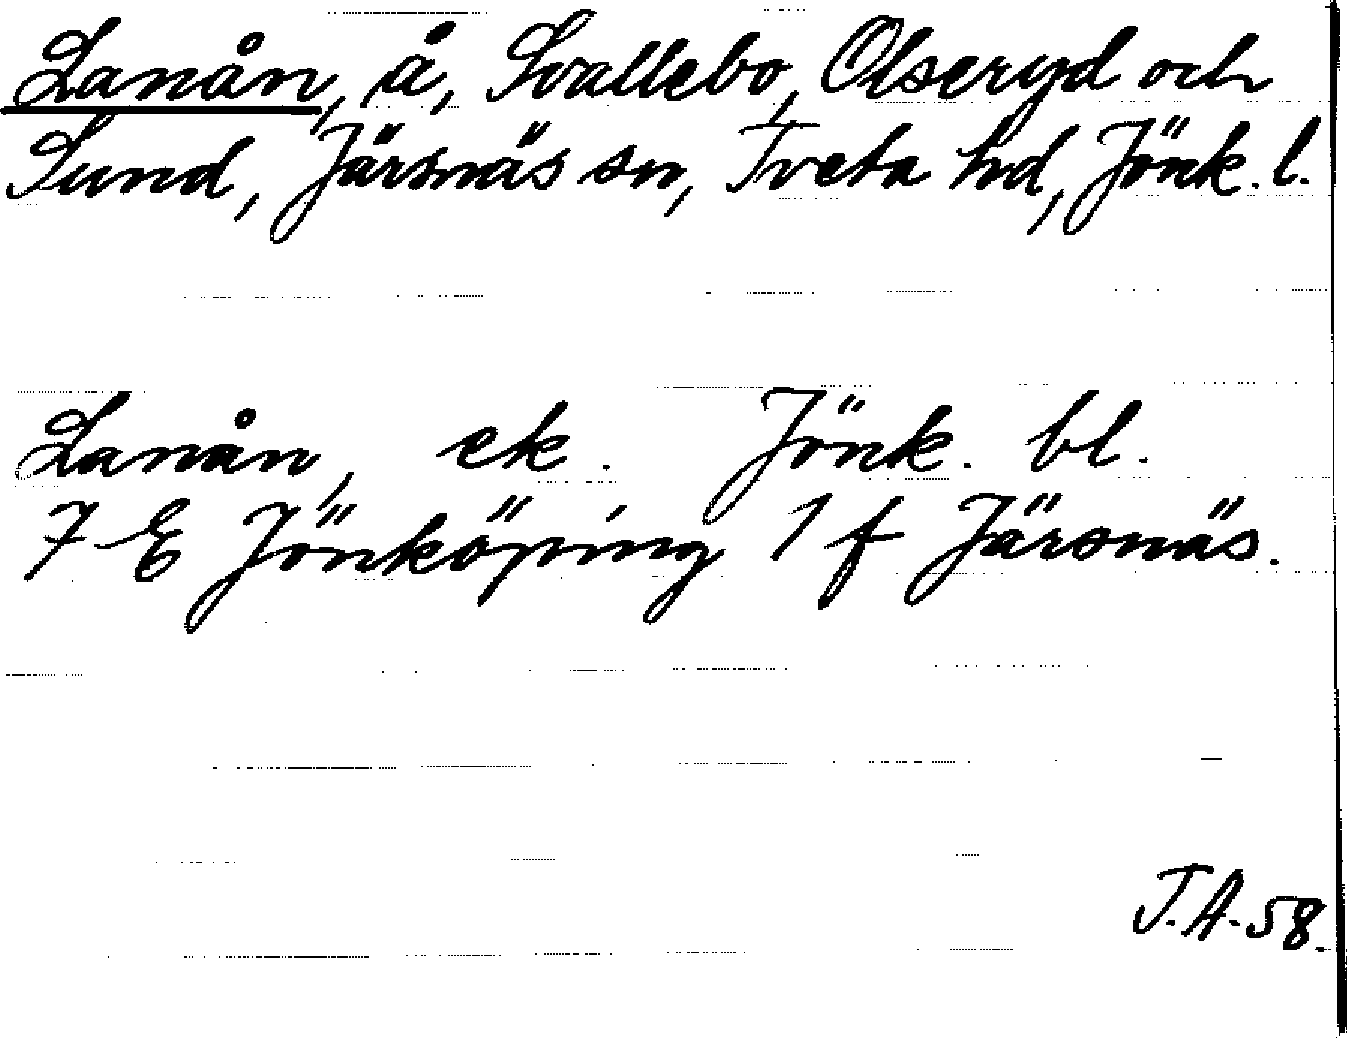 Lanån, å, Svallebo, Olseryd och
Sund, Järsnäs sn, Tveta hd, Jönk. l.
Lanån, ek. Jönk. bl.
7 E Jönköping 1 f Järsnäs.
T.A. 58.